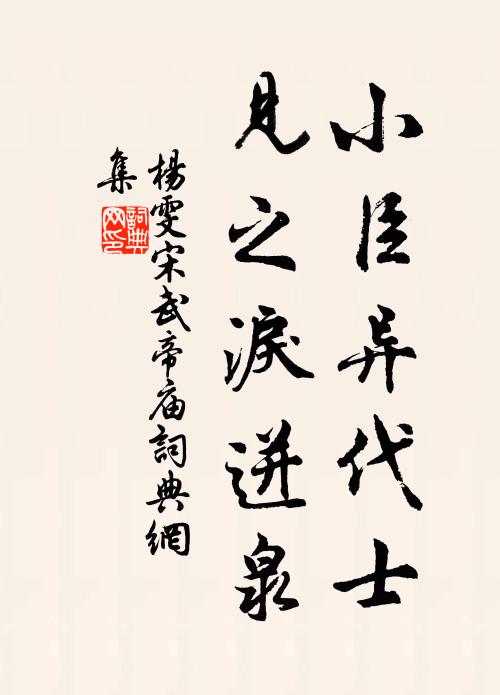 小臣异代士
見之淚迸泉
楊雯宋武帝庙詞典網
集
詞典网印